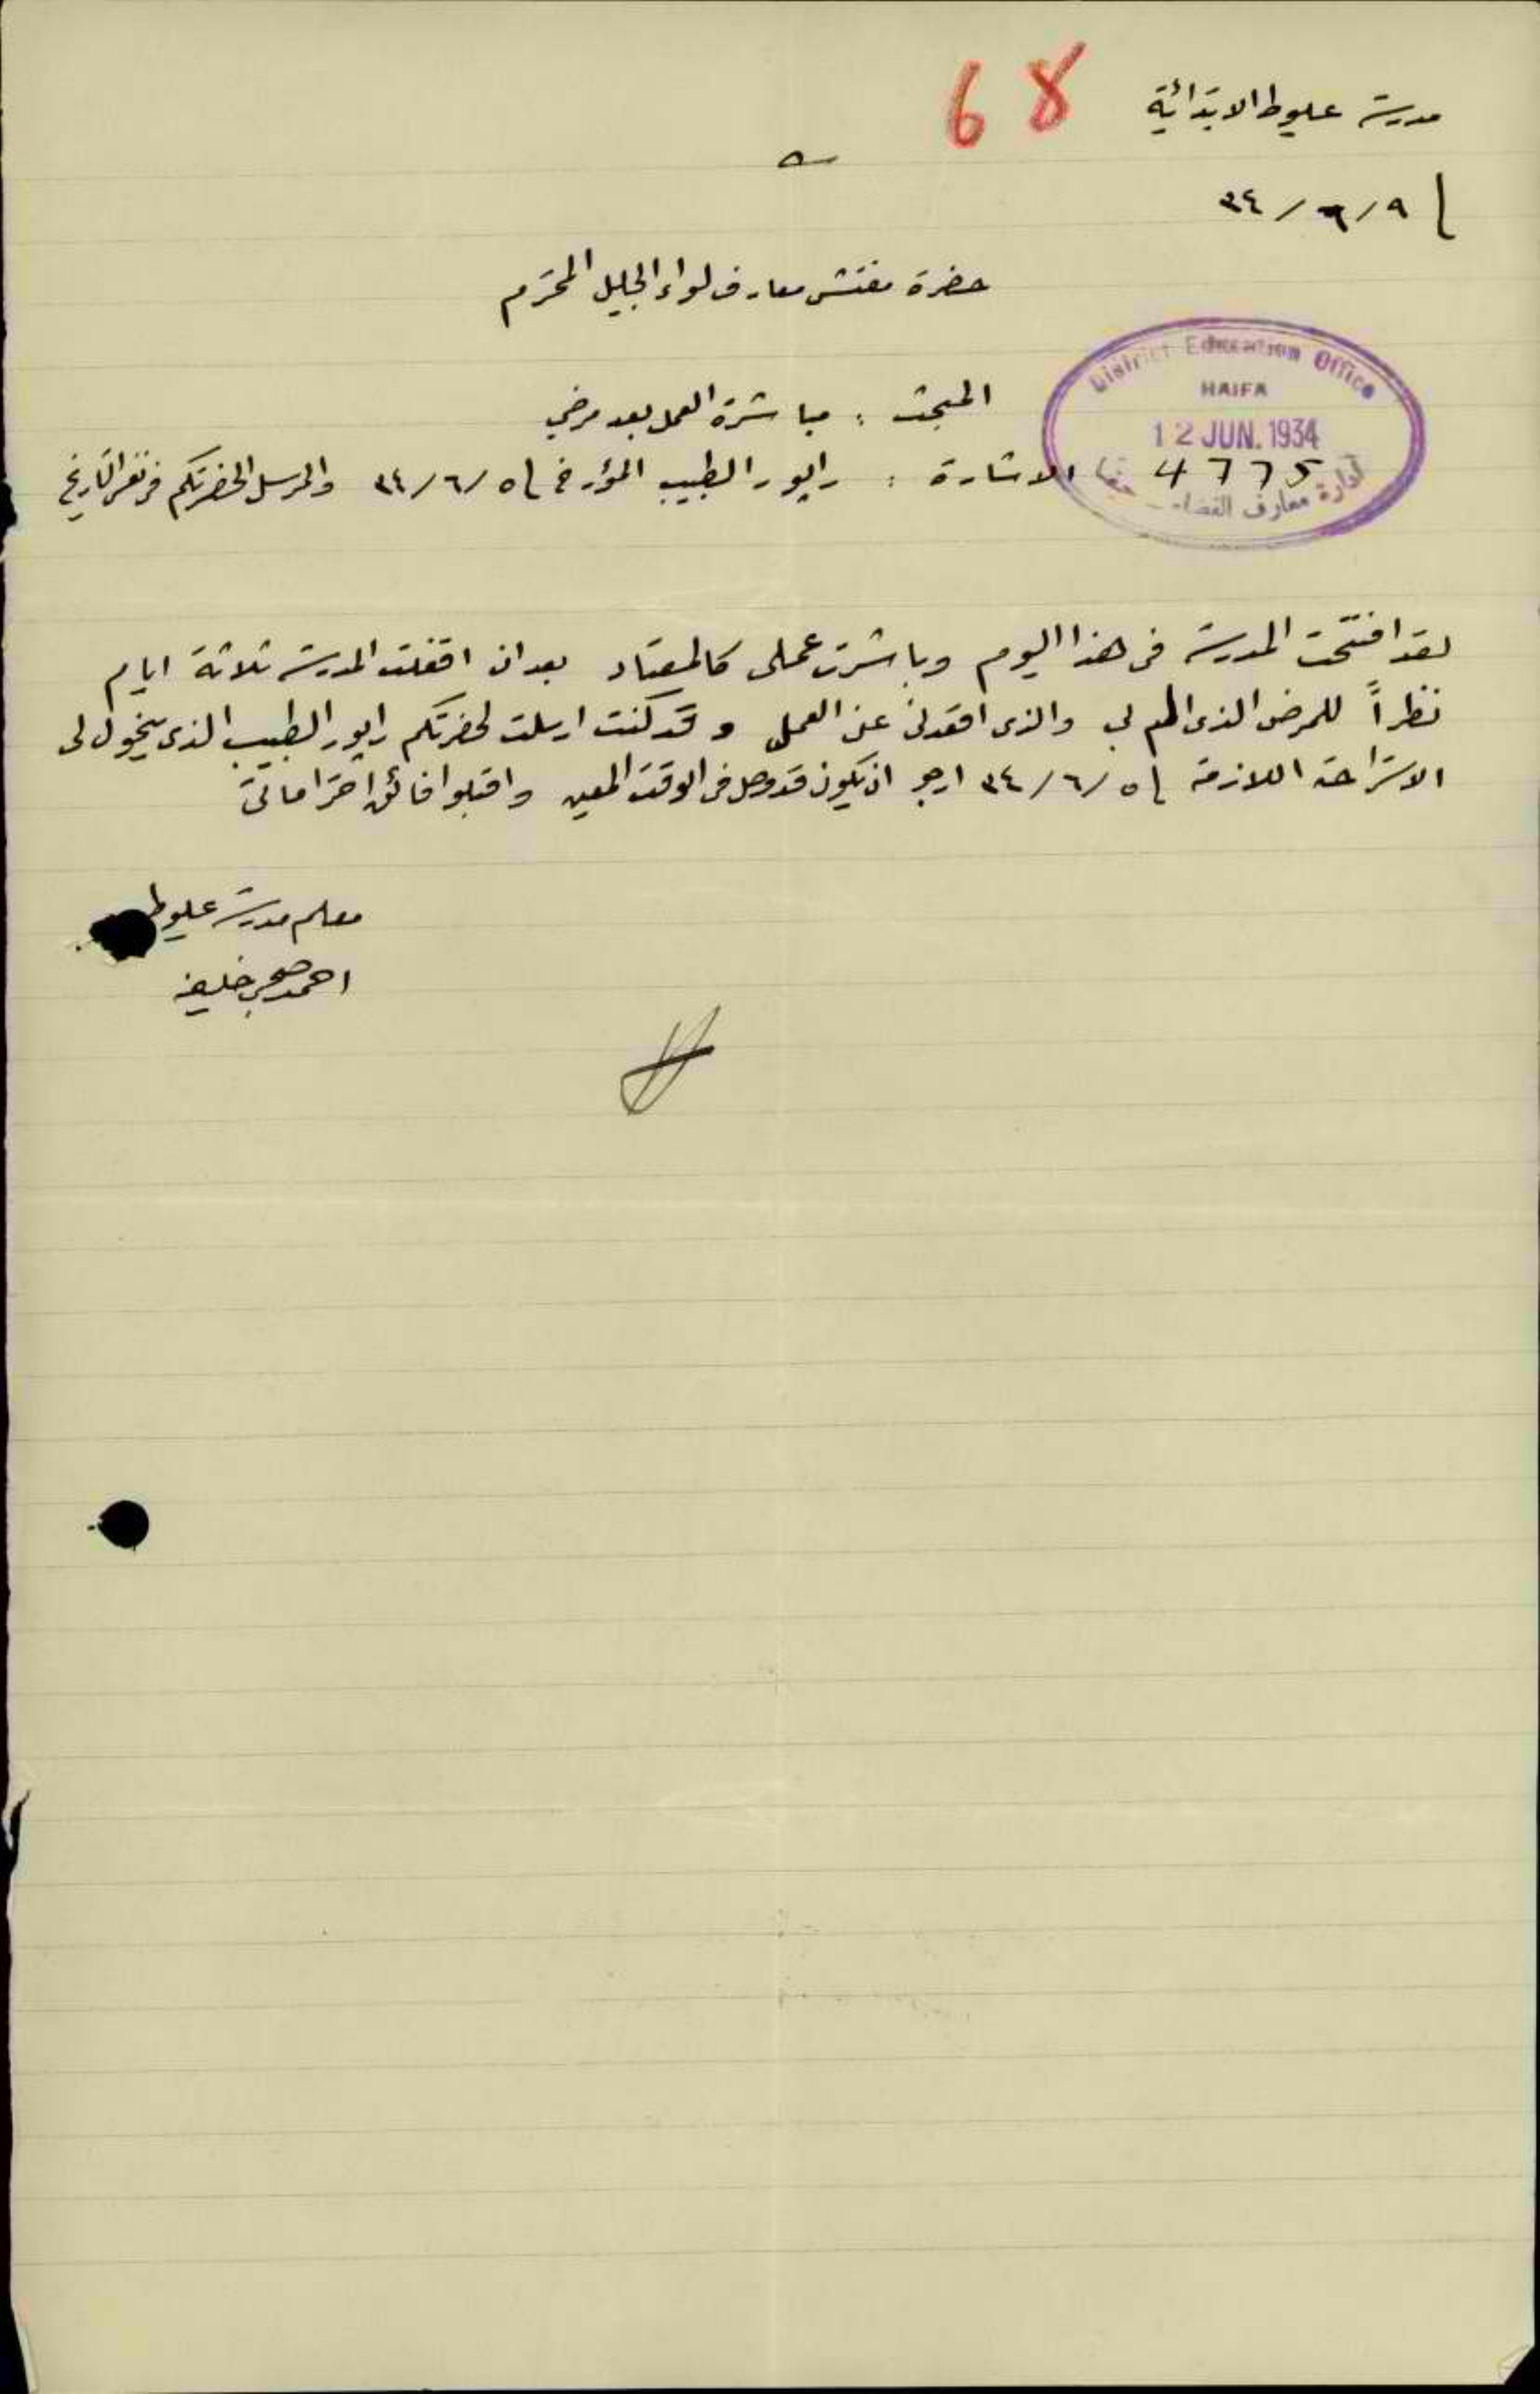 مدرسة عليوط الابتدائية
68
٩/٦/٣٤
حضرة مفتش معارف لواء الجليل المحترم
District Education Office
HAIFA
12 JUN. 1934
4775
ادارة معارف القضاء - حيفا
المبحث : مباشرة العمل بعد مرضي
الاشارة : رابور الطبيب المؤرخ في ٥/٦/٣٤ والمرسل لحضرتكم في نفس التاريخ
لقد افتتحت المدرسة في هذا اليوم وباشرت عملي كالمعتاد بعد ان اقفلت المدرسة ثلاثة ايام
نظراً للمرض الذي الم بي والذي اقعدني عن العمل وقد كنت ارسلت لحضرتكم رابور الطبيب الذي يخول لي
الاستراحة اللازمة في ٥/٦/٣٤ ارجو ان يكون قد وصل في الوقت المعين واقبلوا فائق احتراماتي
معلم مدرسة عليوط
احمد صبحي خليفه